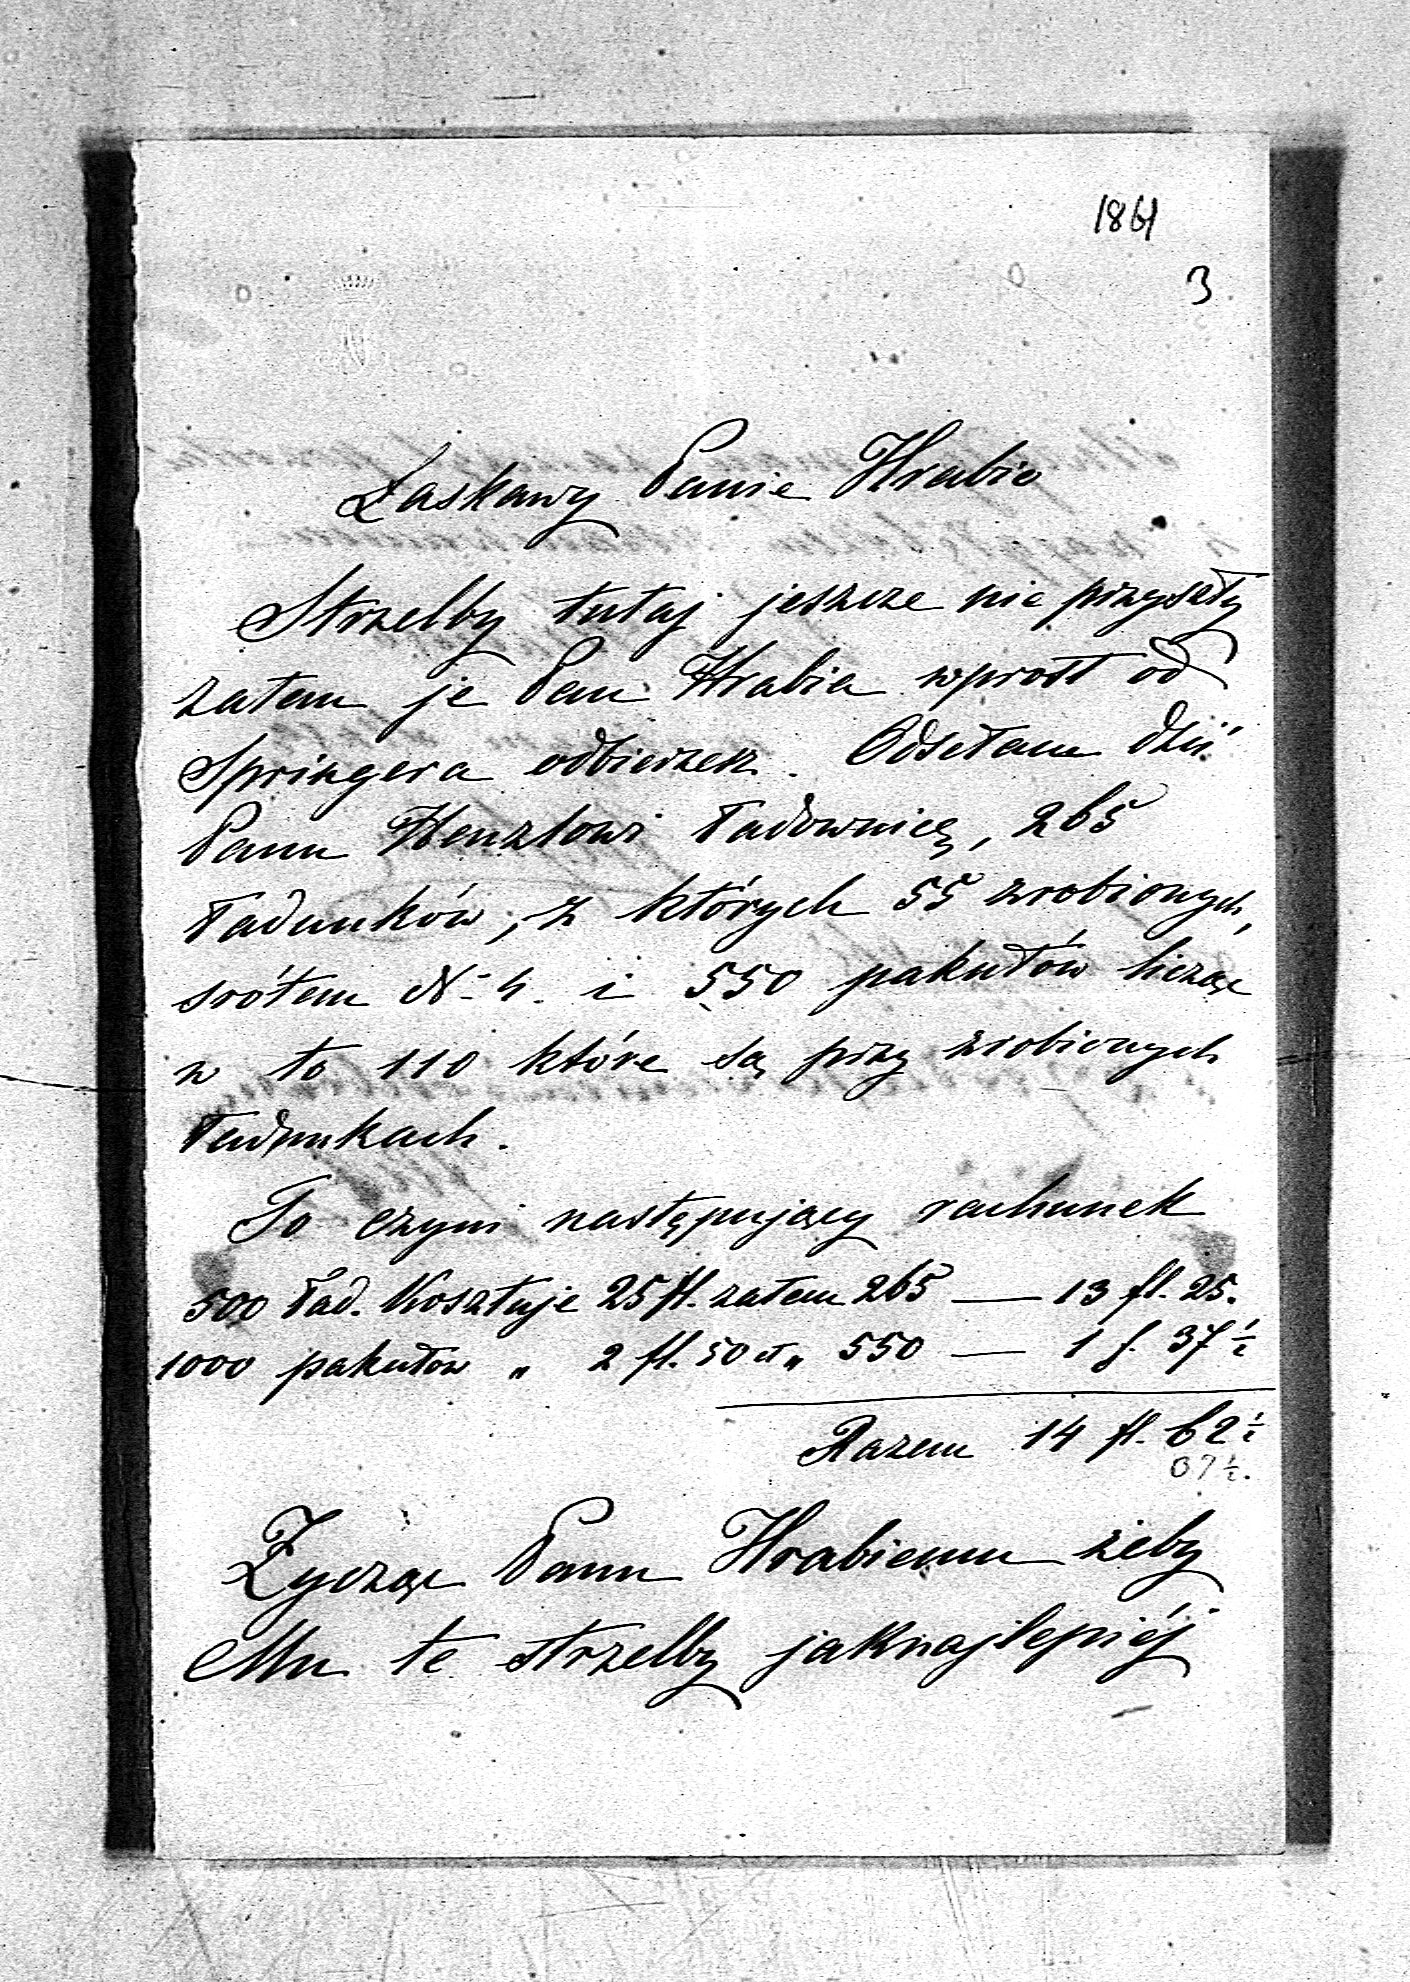 1861
3
Łaskawy Panie Hrabio
Strzelby tutaj jeszcze nie przyszły
zatem je Pan Hrabia wprost od
Springera odbierzesz. Odsełam dziś
Panu Henzlowi ładownicę, 265
ładunków, z których 55 zrobionych,
srótem N. 4. i 550 pakułów licząc
w to 110 które są przy zrobionych
ładunkach.
To czyni następujący rachunek
500 ład. kosztuje 25 fl. zatem 265 — 13 fl. 25.
1000 pakułów „ 2 fl. 50 ct „ 550 — 1 f. 37 ½
Razem 14 fl. 62 ½
87 ½.
Życząc Panu Hrabiemu żeby
Mu te strzelby jaknajlepiéj